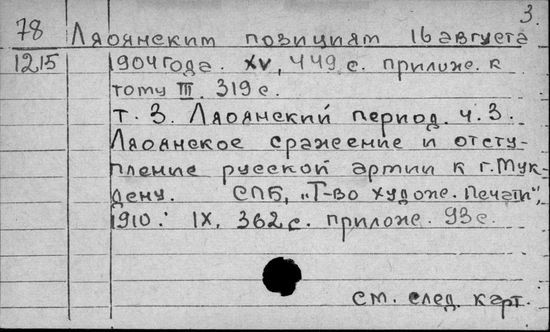 3.
78 Ляоянским позициям 16 августа
1215 1904 года. XV, 449 с. прилож. к
тому III. 319 с.
т. 3. Ляоянский период. ч. 3.
Ляоянское сражение и отсту-
пление русской армии к г. Мук-
дену. СПБ, „Т-во худож. Печати",
1910. IX, 362 с. прилож. 93 с.
см. след. карт.